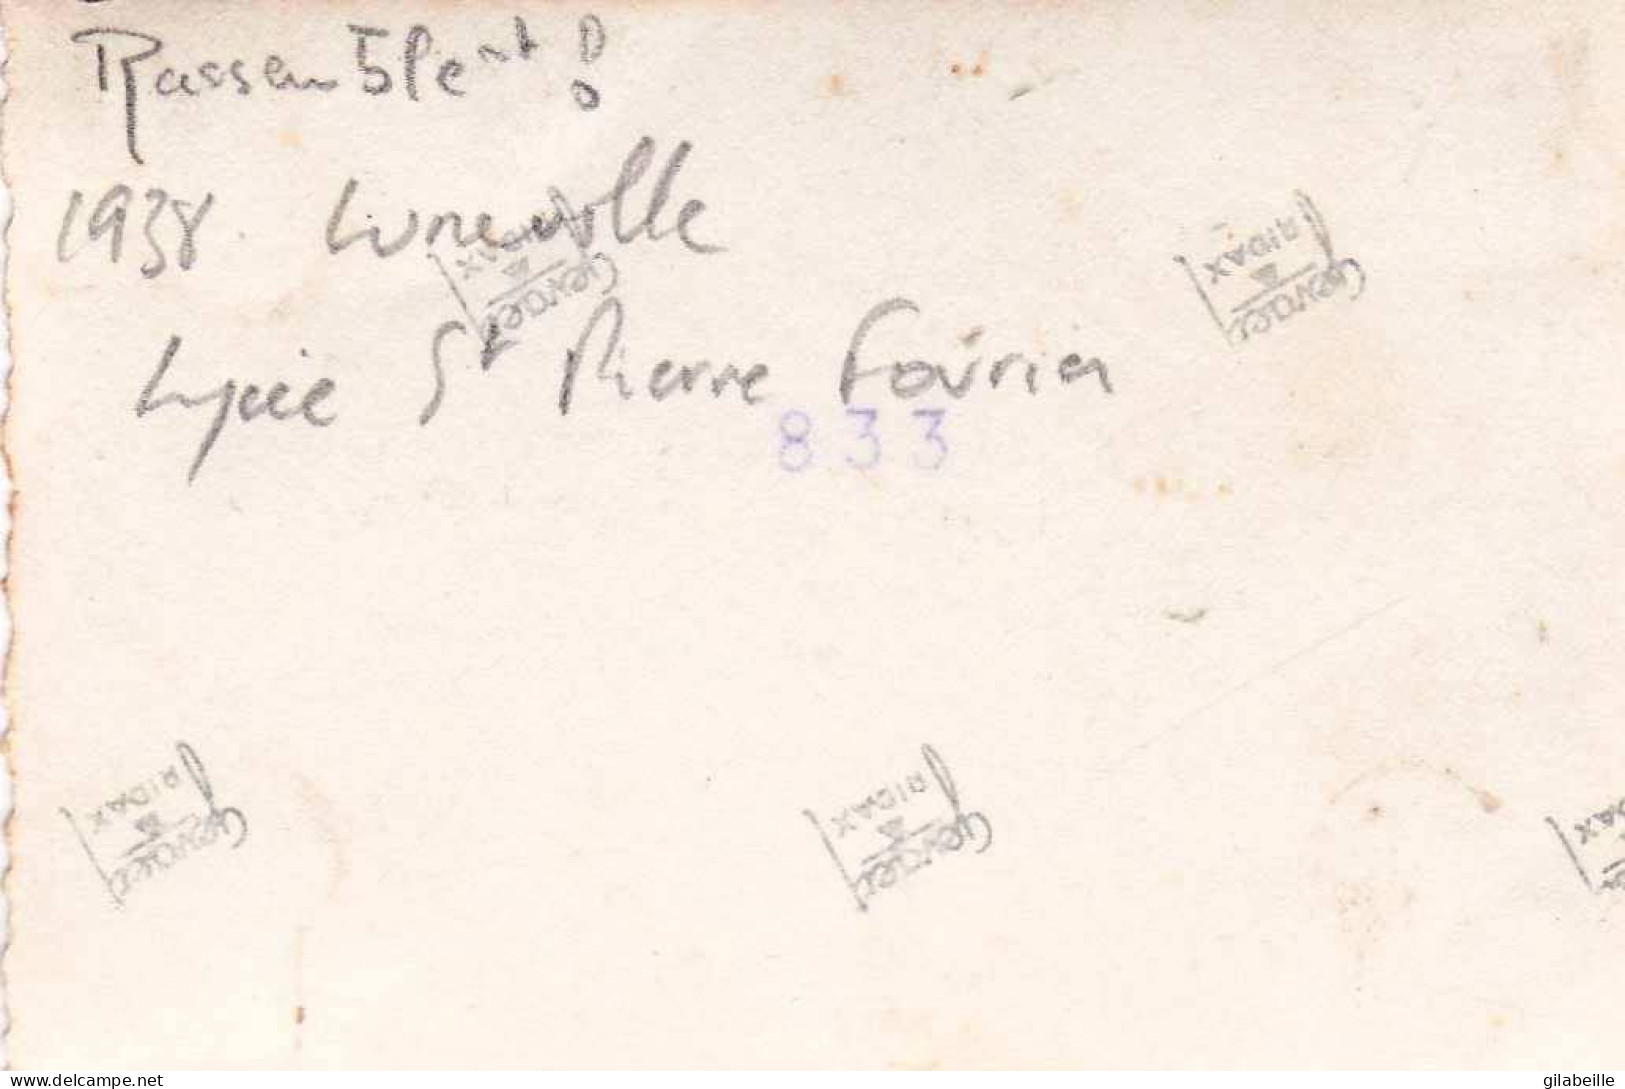 Rassemblent !
1938 Luneville
Lycée St Pierre Fourier
833
Gevaert
RIDAX
Gevaert
RIDAX
Gevaert
RIDAX
Gevaert
RIDAX
IDAX
www.delcampe.net
gilabeille